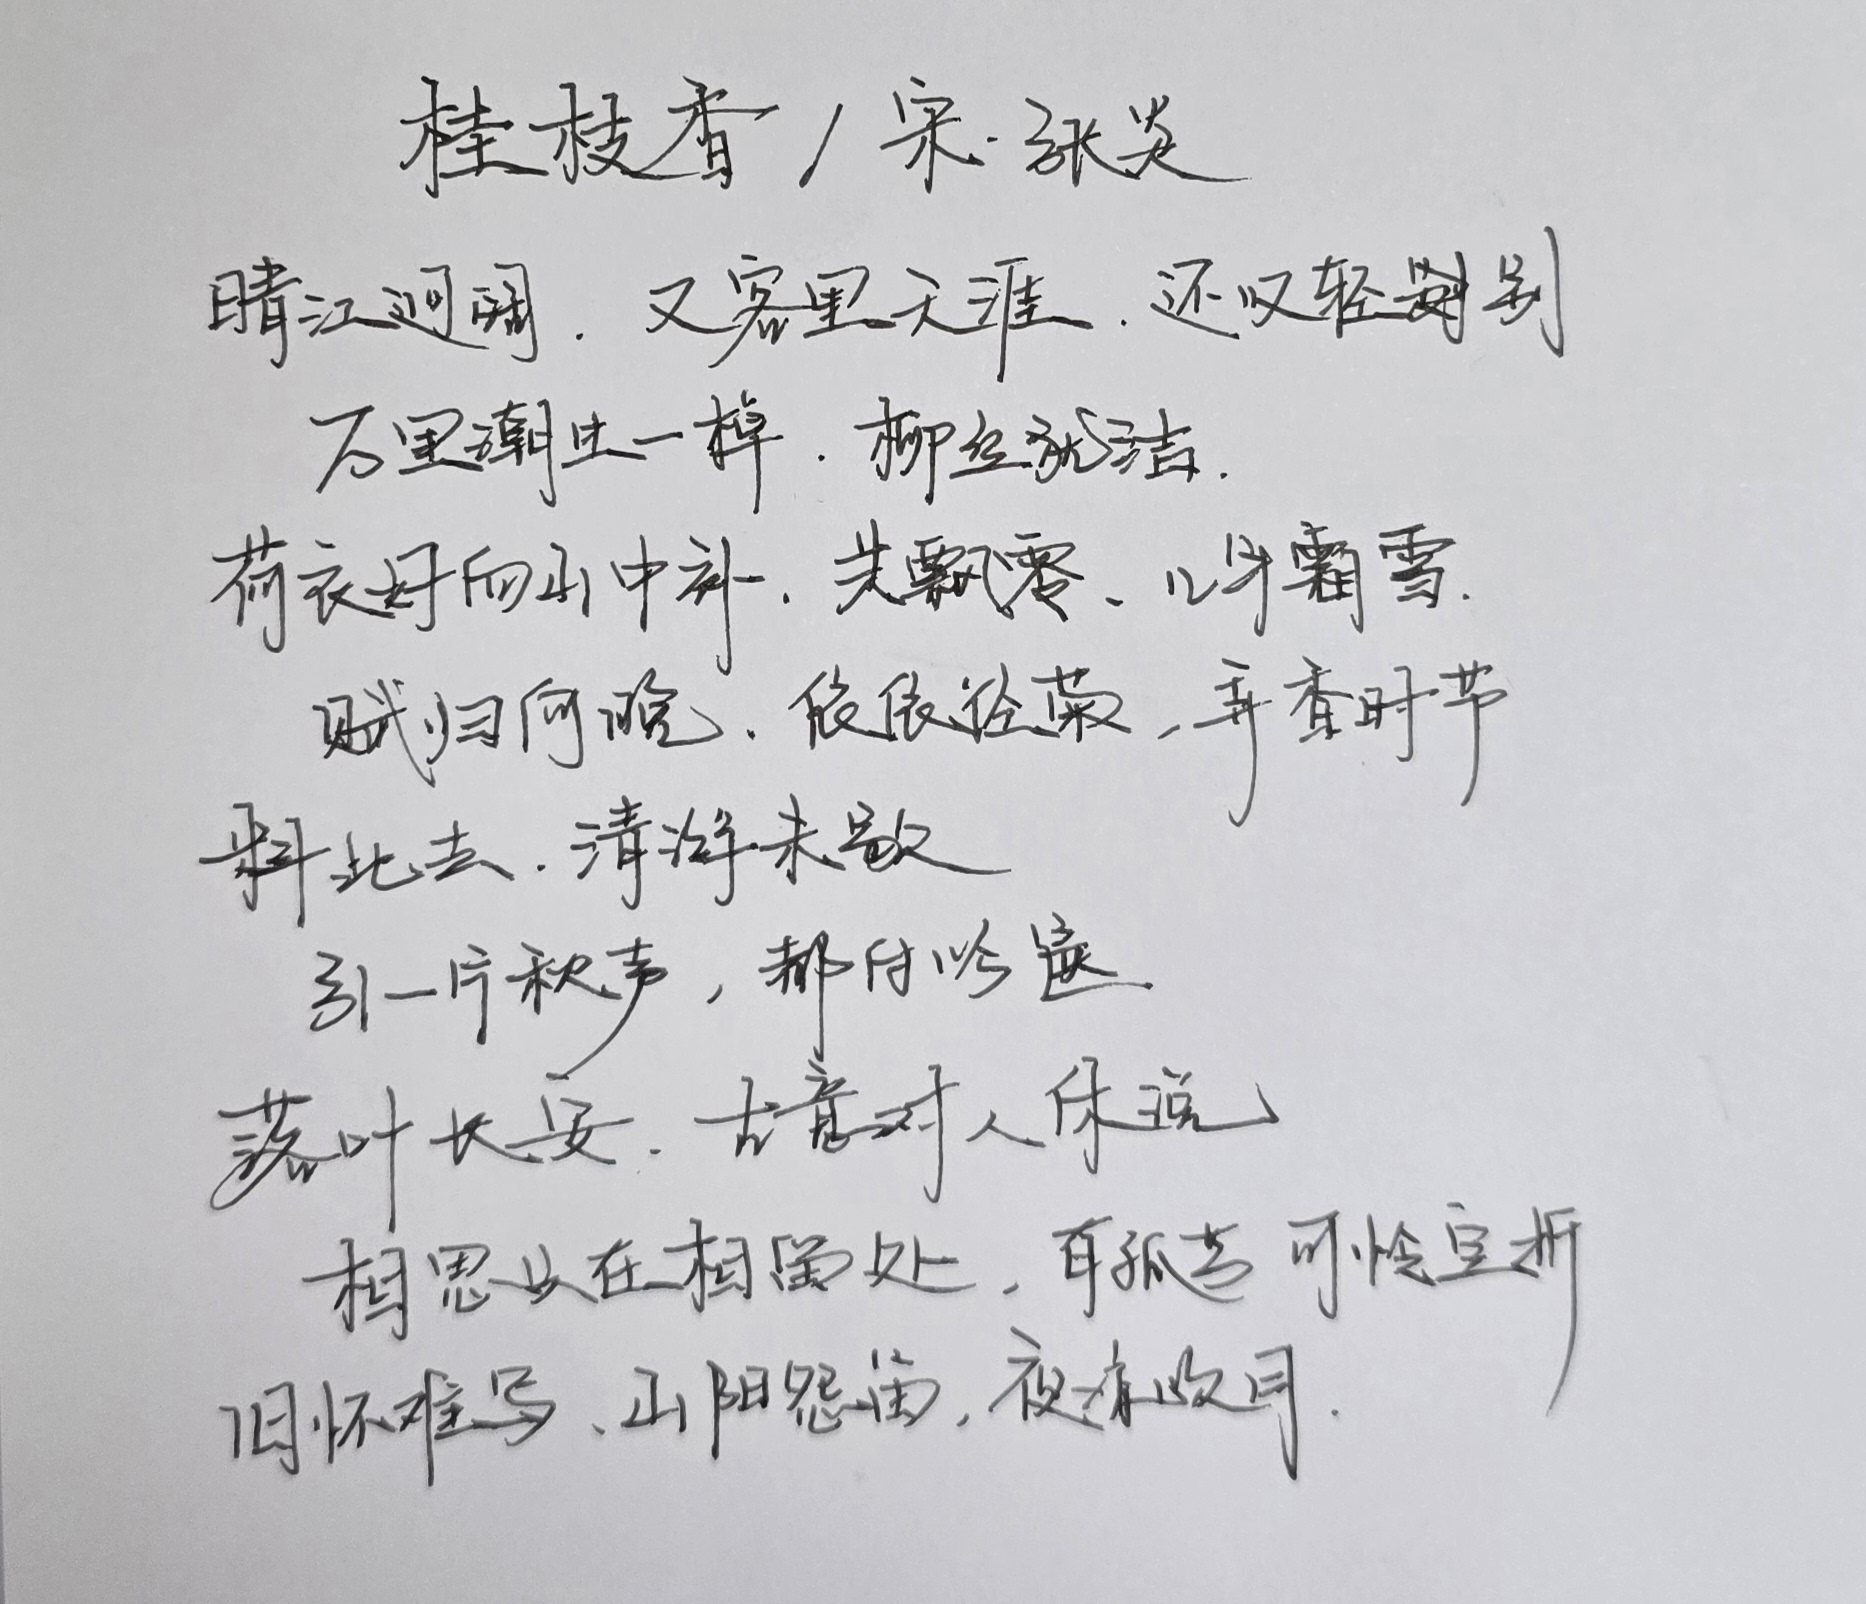 桂枝香/宋·张炎
晴江迥阔.又客里天涯.还叹轻别
万里潮生一棹.柳丝犹结.
荷衣好向山中补.共飘零、几年霜雪.
赋归何晚.依依径菊,弄香时节
料此去.清游未歇
引一片秋声,都付吟箧.
落叶长安.古意对人休说
相思只在相留处,有孤芳 可怜空折
旧怀难写、山阳怨笛,夜凉吹月.